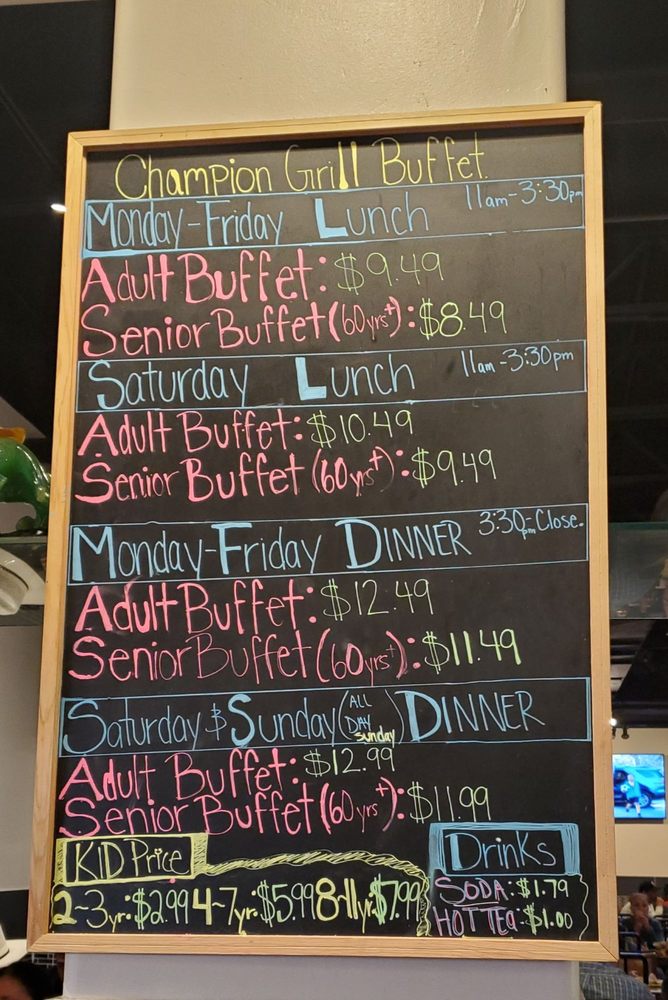 Champion Grill Buffet
Monday-Friday Lunch 11am-3:30pm
Adult Buffet: $9.49
Senior Buffet (60yrs+): $8.49
Saturday Lunch 11am-3:30pm
Adult Buffet: $10.49
Senior Buffet (60yrs+): $9.49
Monday-Friday DINNER 3:30pm-Close.
Adult Buffet: $12.49
Senior Buffet (60yrs+): $11.49
Saturday & Sunday (ALL DAY sunday) DINNER
Adult Buffet: $12.99
Senior Buffet (60yrs+): $11.99
KiD Price
2-3yr: $2.99 4-7yr: $5.99 8-11yr: $7.99
Drinks
SODA: $1.79
HOT TEa: $1.00